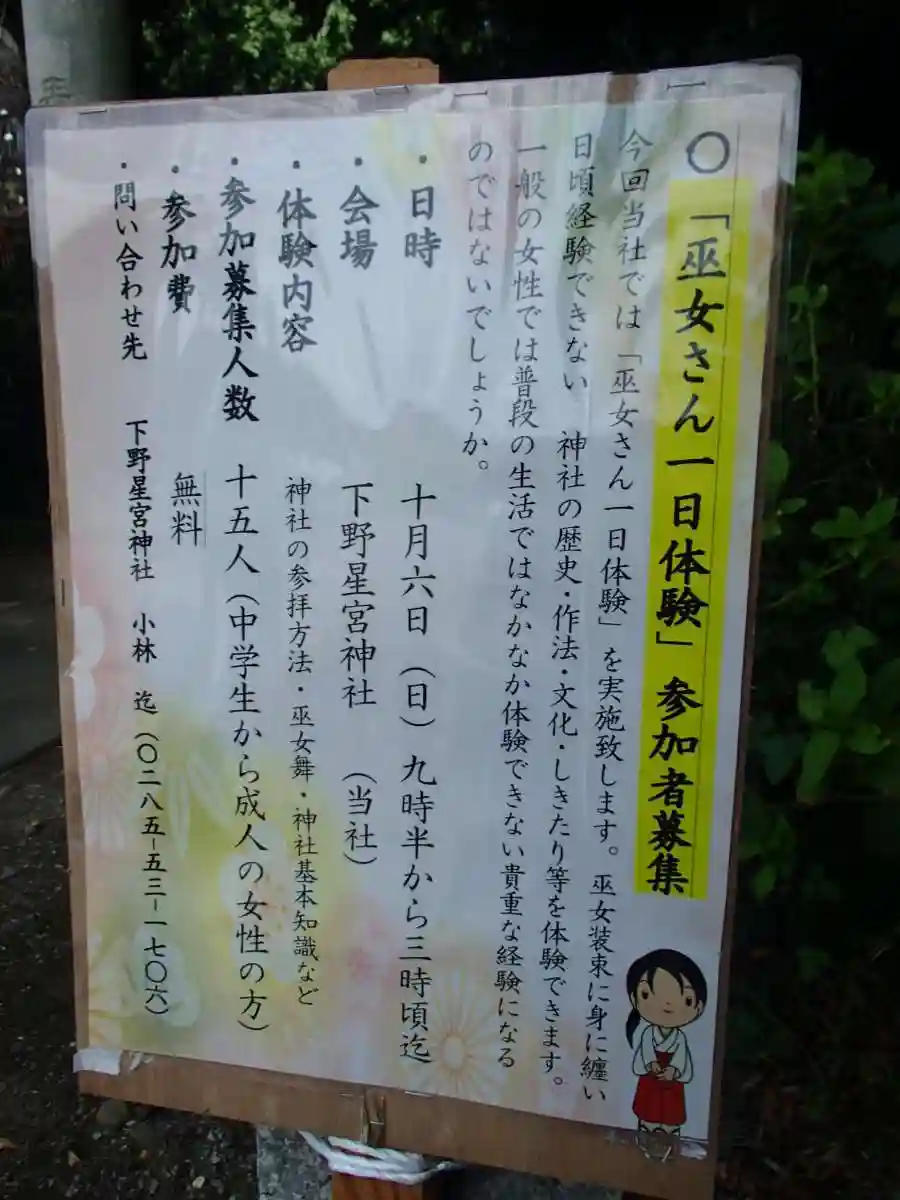 〇「巫女さん一日体験」参加者募集
今回当社では「巫女さん一日体験」を実施致します。巫女装束に身に纏い
日頃経験できない 神社の歴史・作法・文化・しきたり等を体験できます。
一般の女性では普段の生活ではなかなか体験できない貴重な経験になる
のではないでしょうか。
・日時 十月六日(日)九時半から三時頃迄
・会場 下野星宮神社 (当社)
・体験内容 神社の参拝方法・巫女舞・神社基本知識など
・参加募集人数 十五人(中学生から成人の女性の方)
・参加費 無料
・問い合わせ先 下野星宮神社 小林 迄(〇二八五-五三-一七〇六)